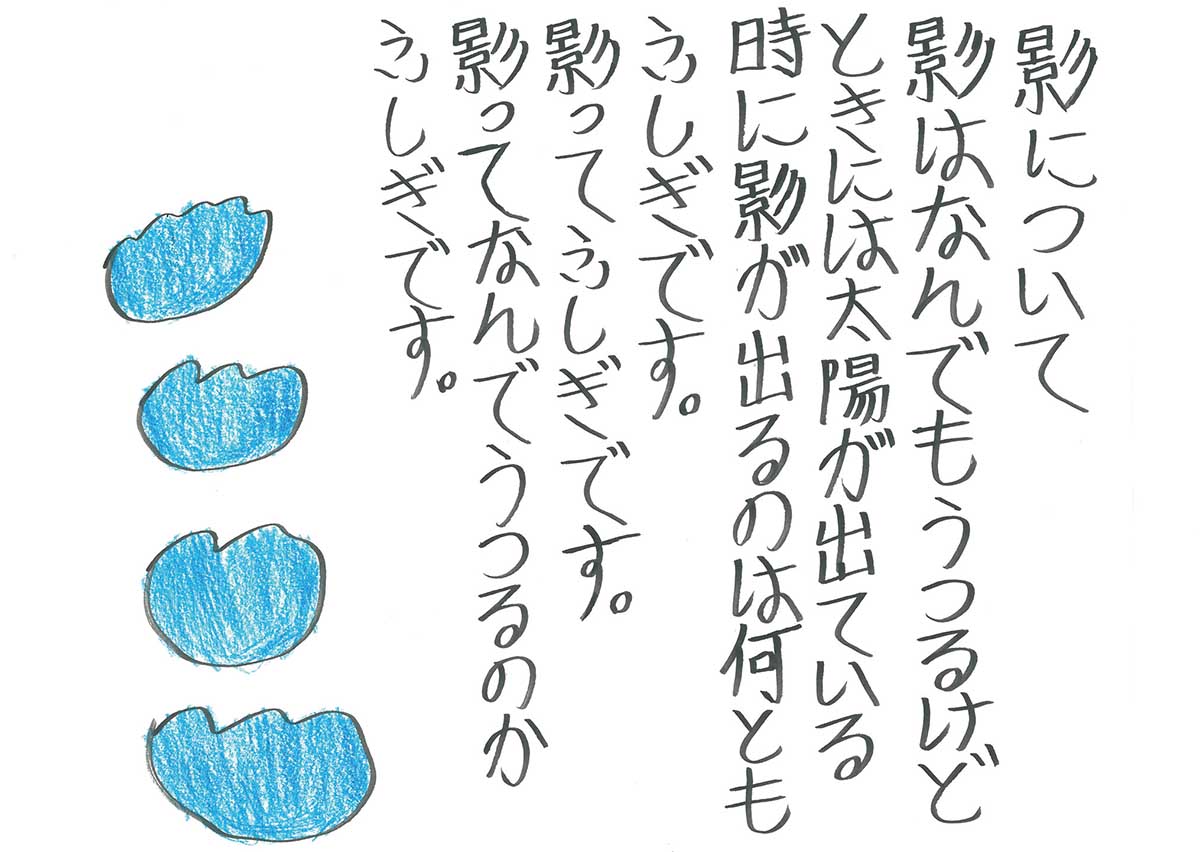 影について
影はなんでもうつるけど
ときには太陽が出ている
時に影が出るのは何とも
ふしぎです。
影ってふしぎです。
影ってなんでうつるのか
ふしぎです。